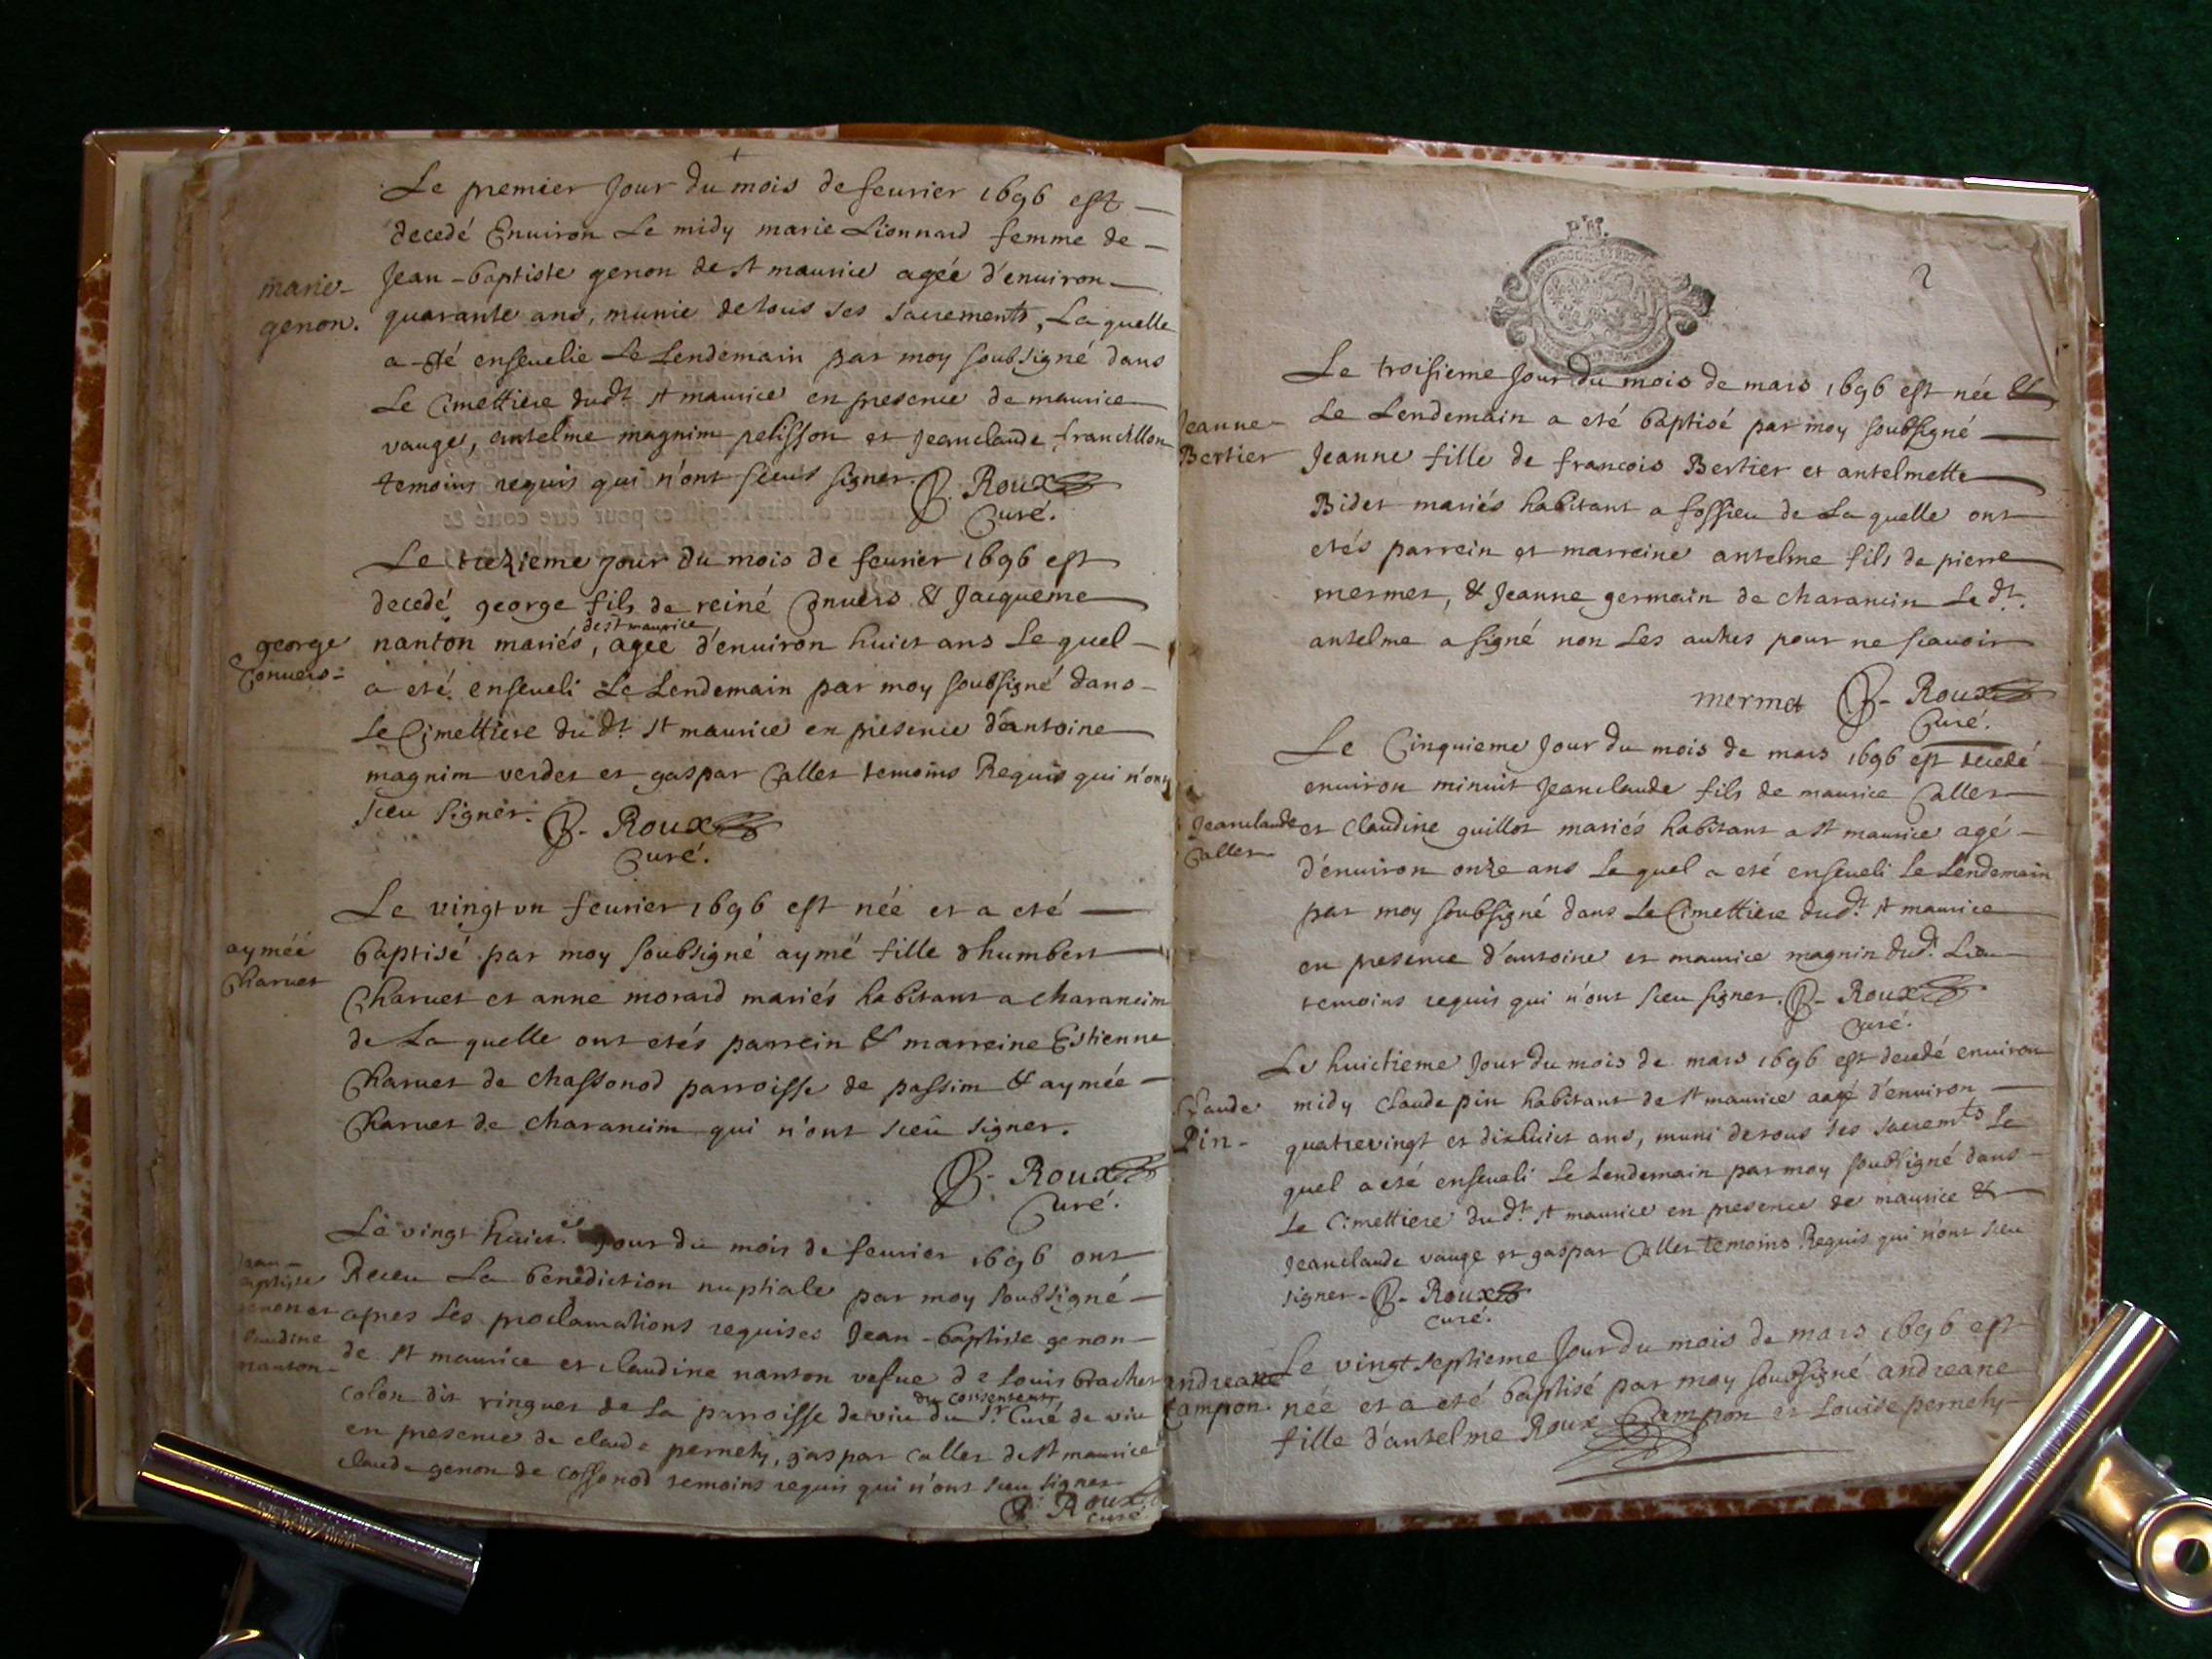 Le premier Jour du mois de feurier 1696 est
decedé Enuiron Le midy marie Lionnard femme de
marie
genon.
Jean-baptiste genon de st maurice agée d'enuiron
quarante ans, munie de tous ses sacrements, La quelle
a eté enseuelie Le Lendemain par moy soubsigné dans
Le Cimettiere dudt st maurice en presence de maurice
vauge, antelme magnim pelisson et Jeanclaude francillon
temoins requis qui n'ont sceus signer. Roux
Curé.
Le treizieme jour du mois de feurier 1696 est
decedé george fils de reiné Conuers & Jacqueme
de st maurice
george
Conuers
nanton mariés, agée d'enuiron huict ans Le quel
a eté enseueli Le Lendemain par moy soubsigné dans
Le Cimettiere du dt st maurice en presence d'antoine
magnim verdet et gaspar Callet temoins Requis qui n'ont
sceu signer. Roux
Curé.
Le vingt vn feurier 1696 est née et a eté
ayméé
Charuet
baptisé par moy soubsigné aymé fille d'humbert
Charuet et anne morard mariés habitant a charancim
de La quelle ont etés parrein & marreine Estienne
Charuet de chassonod parroisse de passim & aymée
Charuet de charancim qui n'ont sceu signer.
Roux
Curé.
Le vingt huict Jour du mois de feurier 1696 ont
Receu La benediction nuptiale par moy soubsigné
apres Les proclamations requises Jean-baptiste genon
genon et
claudine
nanton
de st maurice et claudine nanton vefue de Louis brachet
du consentemt
colon dit ringuet de La parroisse de viu du sr Curé de viu
en presence de claude pernety, gaspar callet de st maurice
claude genon de cossonod temoins requis qui n'ont sceu signer
Roux
curé
2
Le troisieme Jour du mois de mars 1696 est née &
Jeanne
Bertier
Le Lendemain a eté baptisé par moy soubsigné
Jeanne fille de francois Bertier et antelmette
Bidet mariés habitant a fossieu de La quelle ont
etés parrein et marreine antelme fils de pierre
mermet, & Jeanne germain de charancin Le dt.
antelme a signé non Les autres pour ne scauoir
mermet Roux
Curé.
Le Cinquieme Jour du mois de mars 1696 est decedé
enuiron minuit Jeanclaude fils de maurice Callet
Jeanclaude
Callet
et claudine guillot mariés habitant a st maurice agé
d'enuiron onze ans Le quel a eté enseueli Le Lendemain
par moy soubsigné dans Le Cimettiere dudt. st maurice
en presence d'antoine et maurice magnin dud. Lieu
temoins requis qui n'ont sceu signer. Roux
Curé.
Le huictieme Jour du mois de mars 1696 est decedé enuiron
Claude
Pin
midy claude pin habitant de st maurice aagé d'enuiron
quatrevingt et dixhuict ans, muni de tous ses sacremts Le
quel a eté enseueli Le Lendemain par moy soubsigné dans
Le Cimettiere dudt. st maurice en presence de maurice &
Jeanclaude vauge et gaspar Callet temoins Requis qui n'ont sceu
signer Roux
curé.
Le vingt septieme Jour du mois de mars 1696 est
andreane
Campron
née et a eté baptisé par moy soubsigné andreane
fille d'antelme Roux Campron et Louise pernety